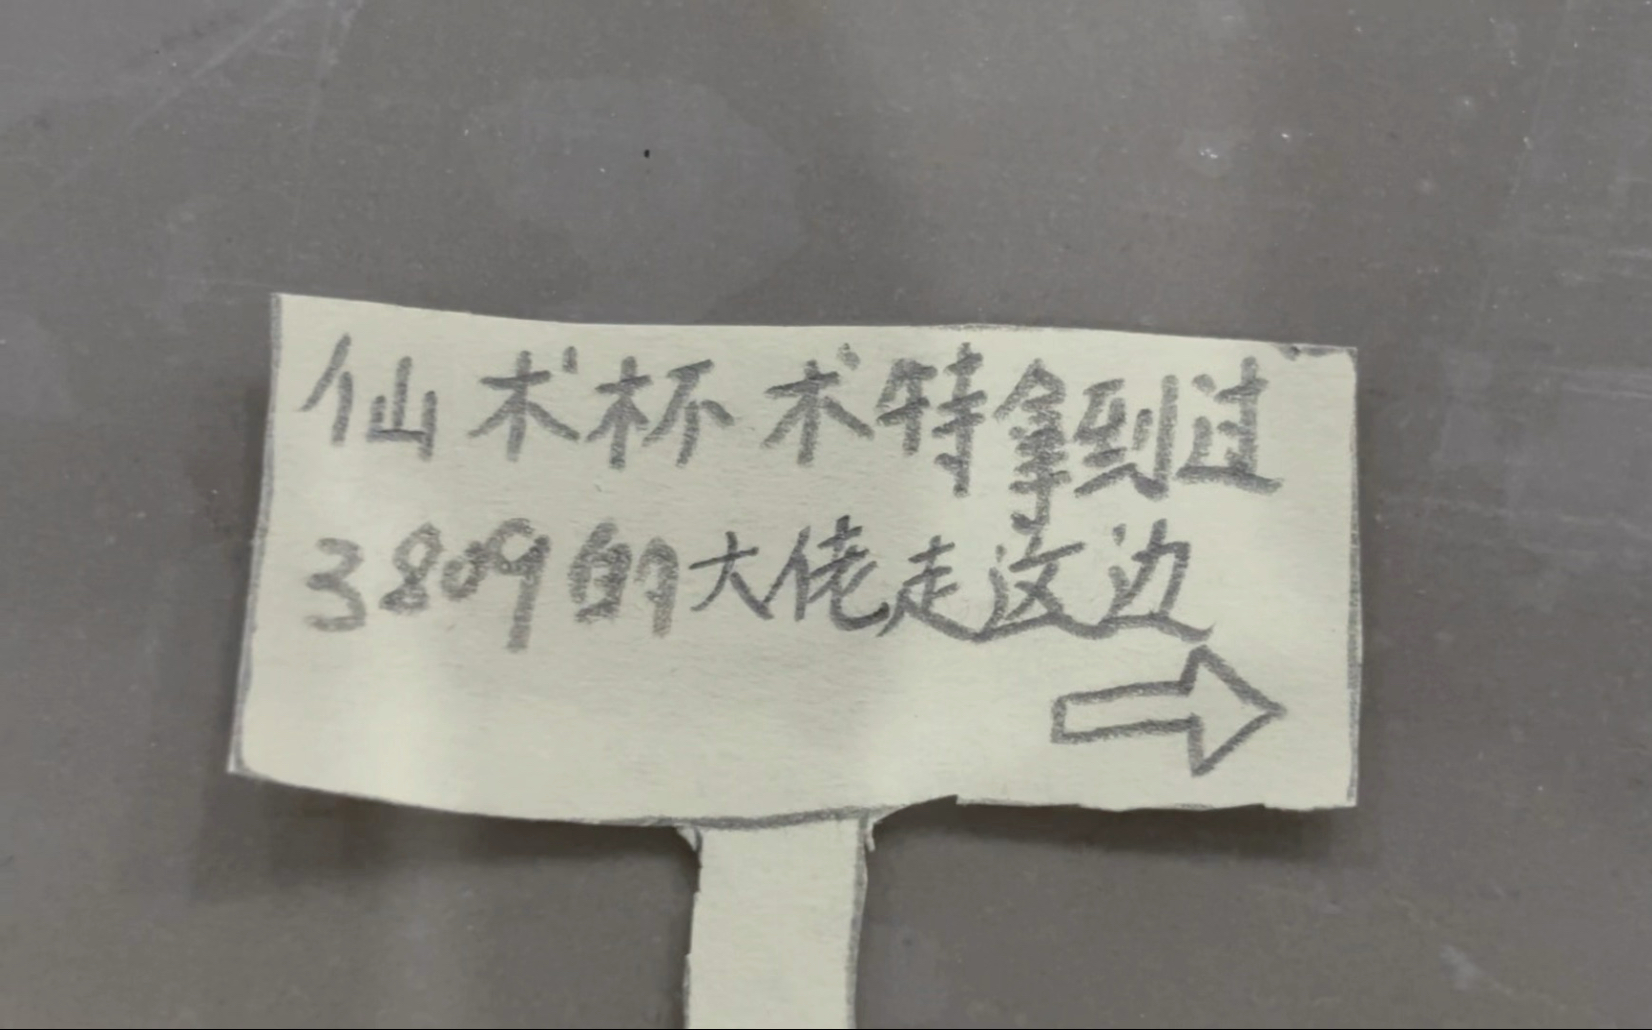 仙术杯术特拿到过
3809的大佬走这边